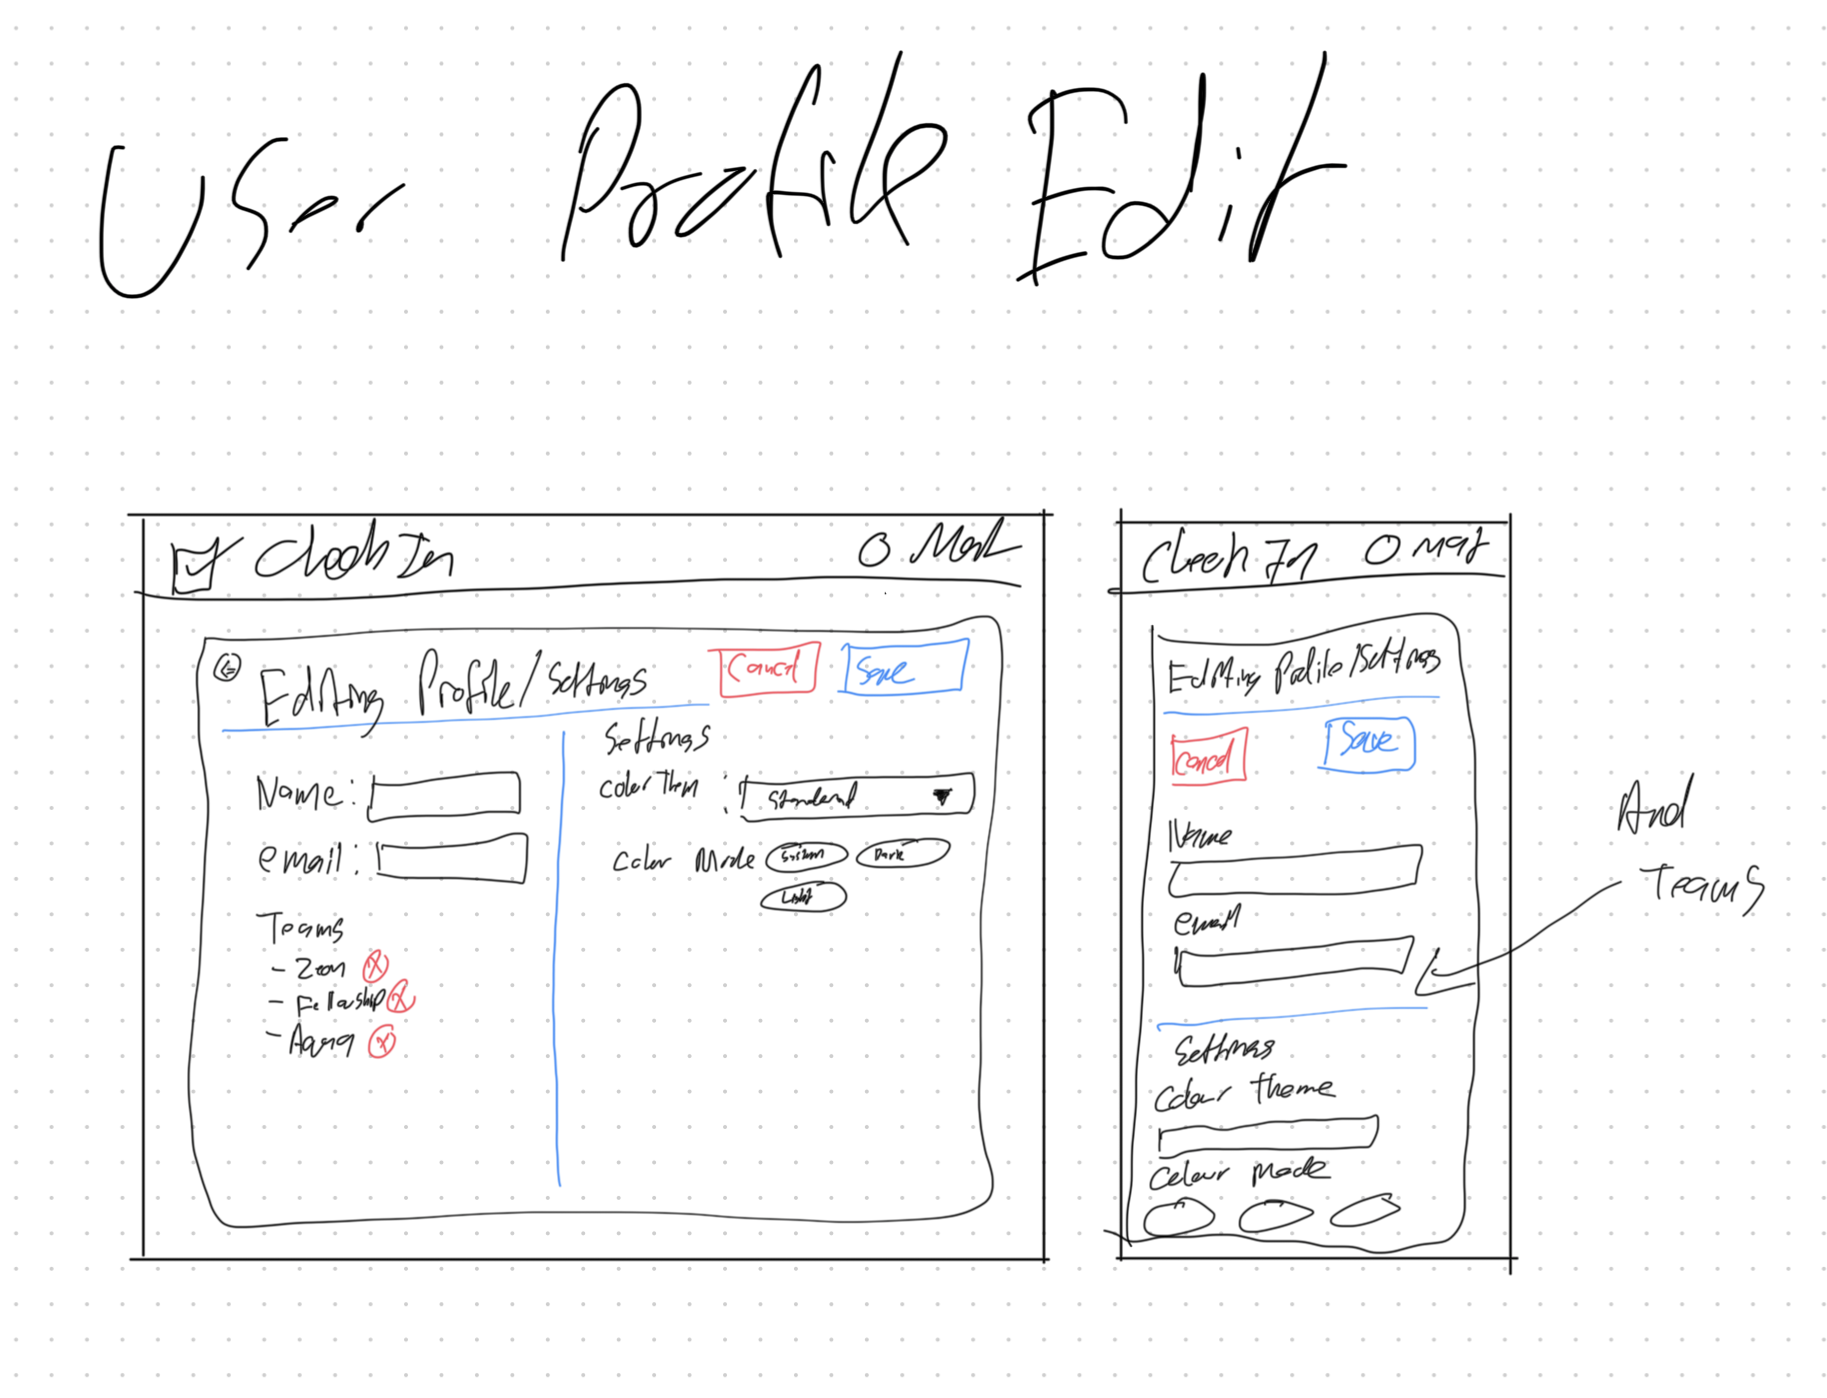 User Profile Edit
Check In
O Mat
Editing Profile/Settings
Cancel
Save
Name:
email:
Teams
- Zeon
- Fellowship
- Aqua
Settings
Color Them :
Standard
Color Mode
System
Dark
Light
Check In
O Mat
Editing Profile/Settings
Cancel
Save
Name
email
And
Teams
Settings
Colour Theme
Colour Mode